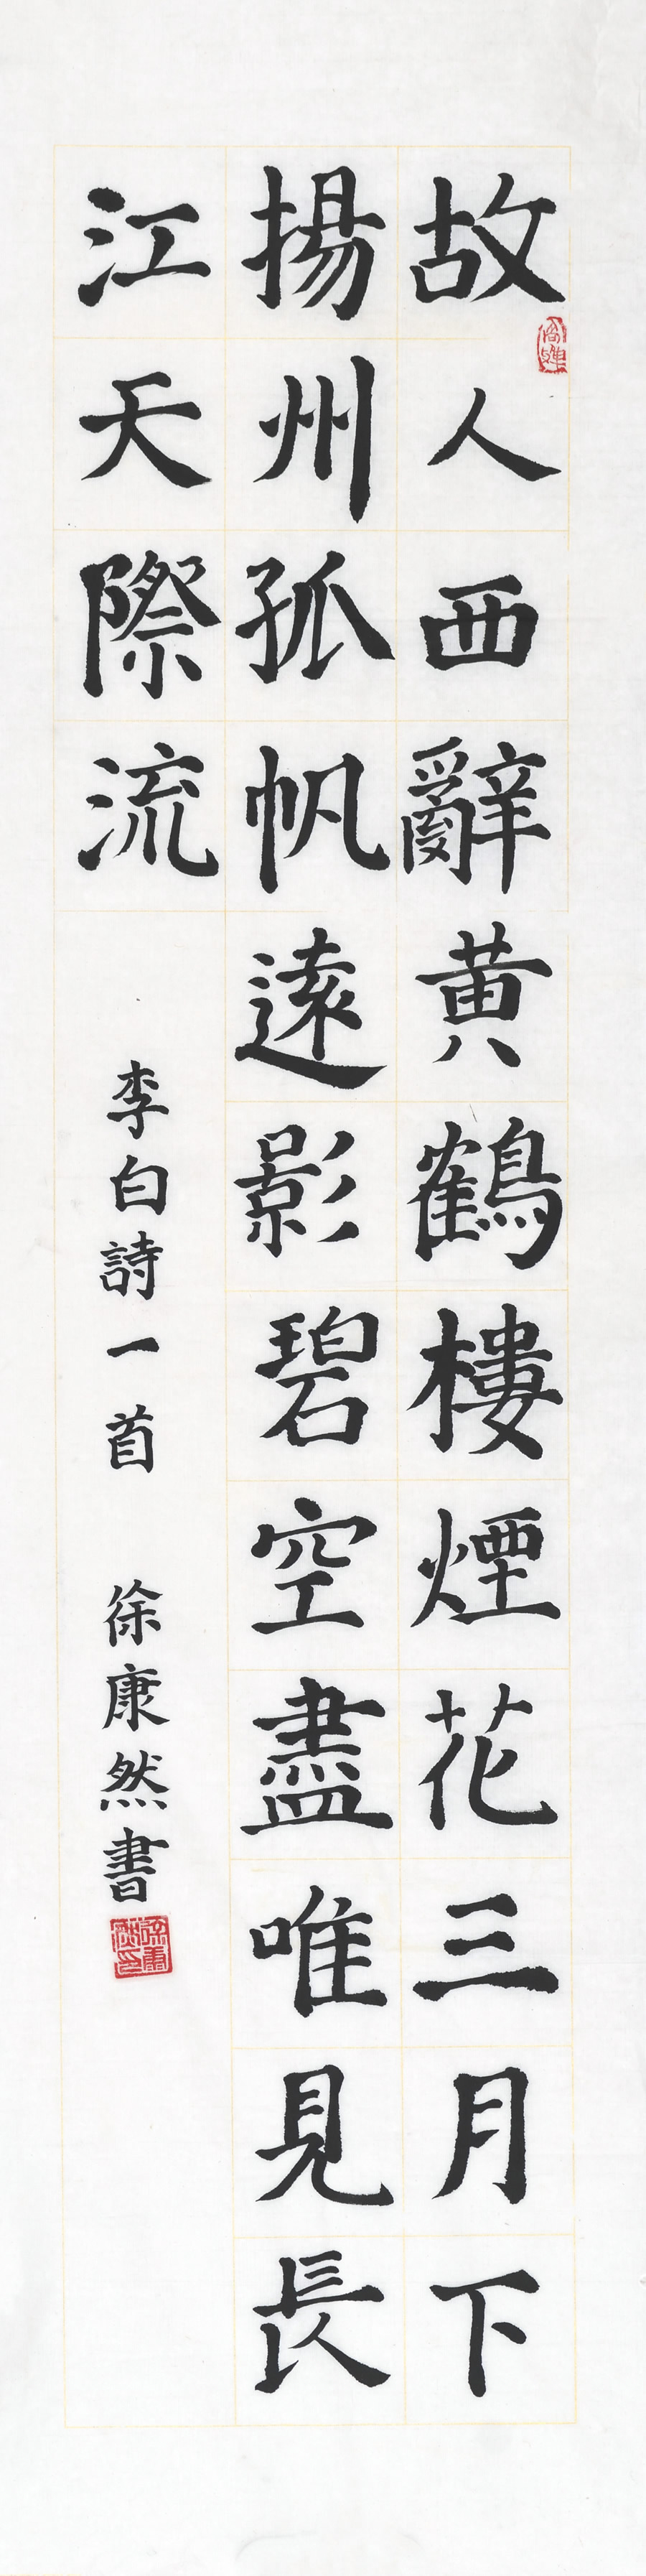 故人西辭黃鶴樓煙花三月下
揚州孤帆遠影碧空盡唯見長
江天際流
李白詩一首 徐康然書
徐康然印